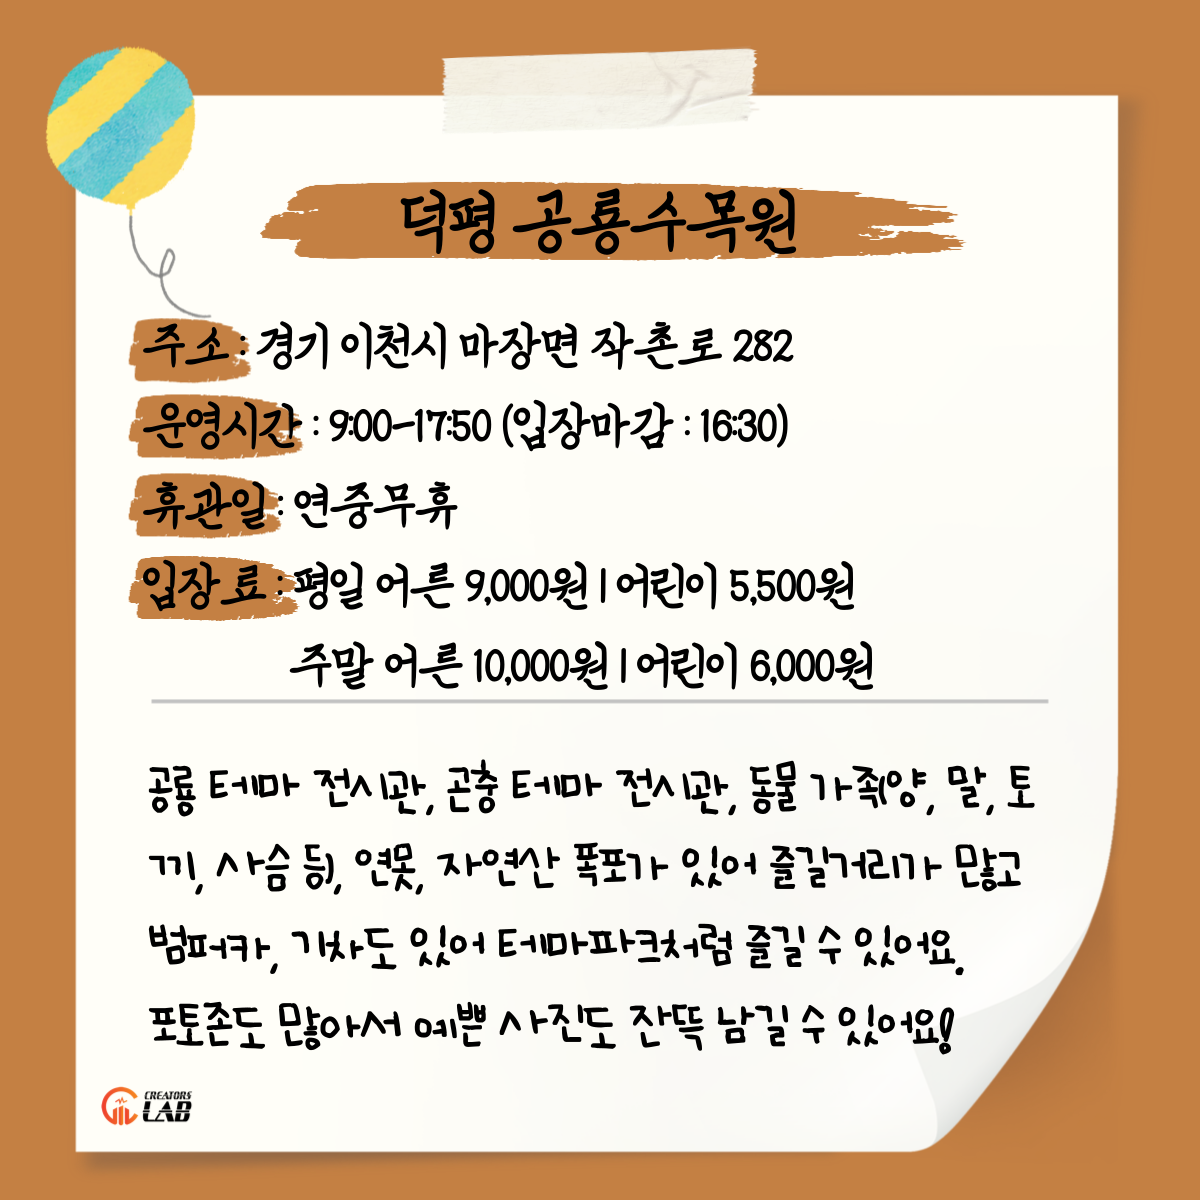 덕평 공룡수목원
주소 : 경기 이천시 마장면 작촌로 282
운영시간 : 9:00-17:50 (입장마감 : 16:30)
휴관일 : 연중무휴
입장료 : 평일 어른 9,000원 | 어린이 5,500원
주말 어른 10,000원 | 어린이 6,000원
공룡 테마 전시관, 곤충 테마 전시관, 동물 가족(양, 말, 토
끼, 사슴 등), 연못, 자연산 폭포가 있어 즐길거리가 많고
범퍼카, 기차도 있어 테마파크처럼 즐길 수 있어요.
포토존도 많아서 예쁜 사진도 잔뜩 남길 수 있어요!
CREATORS
LAB